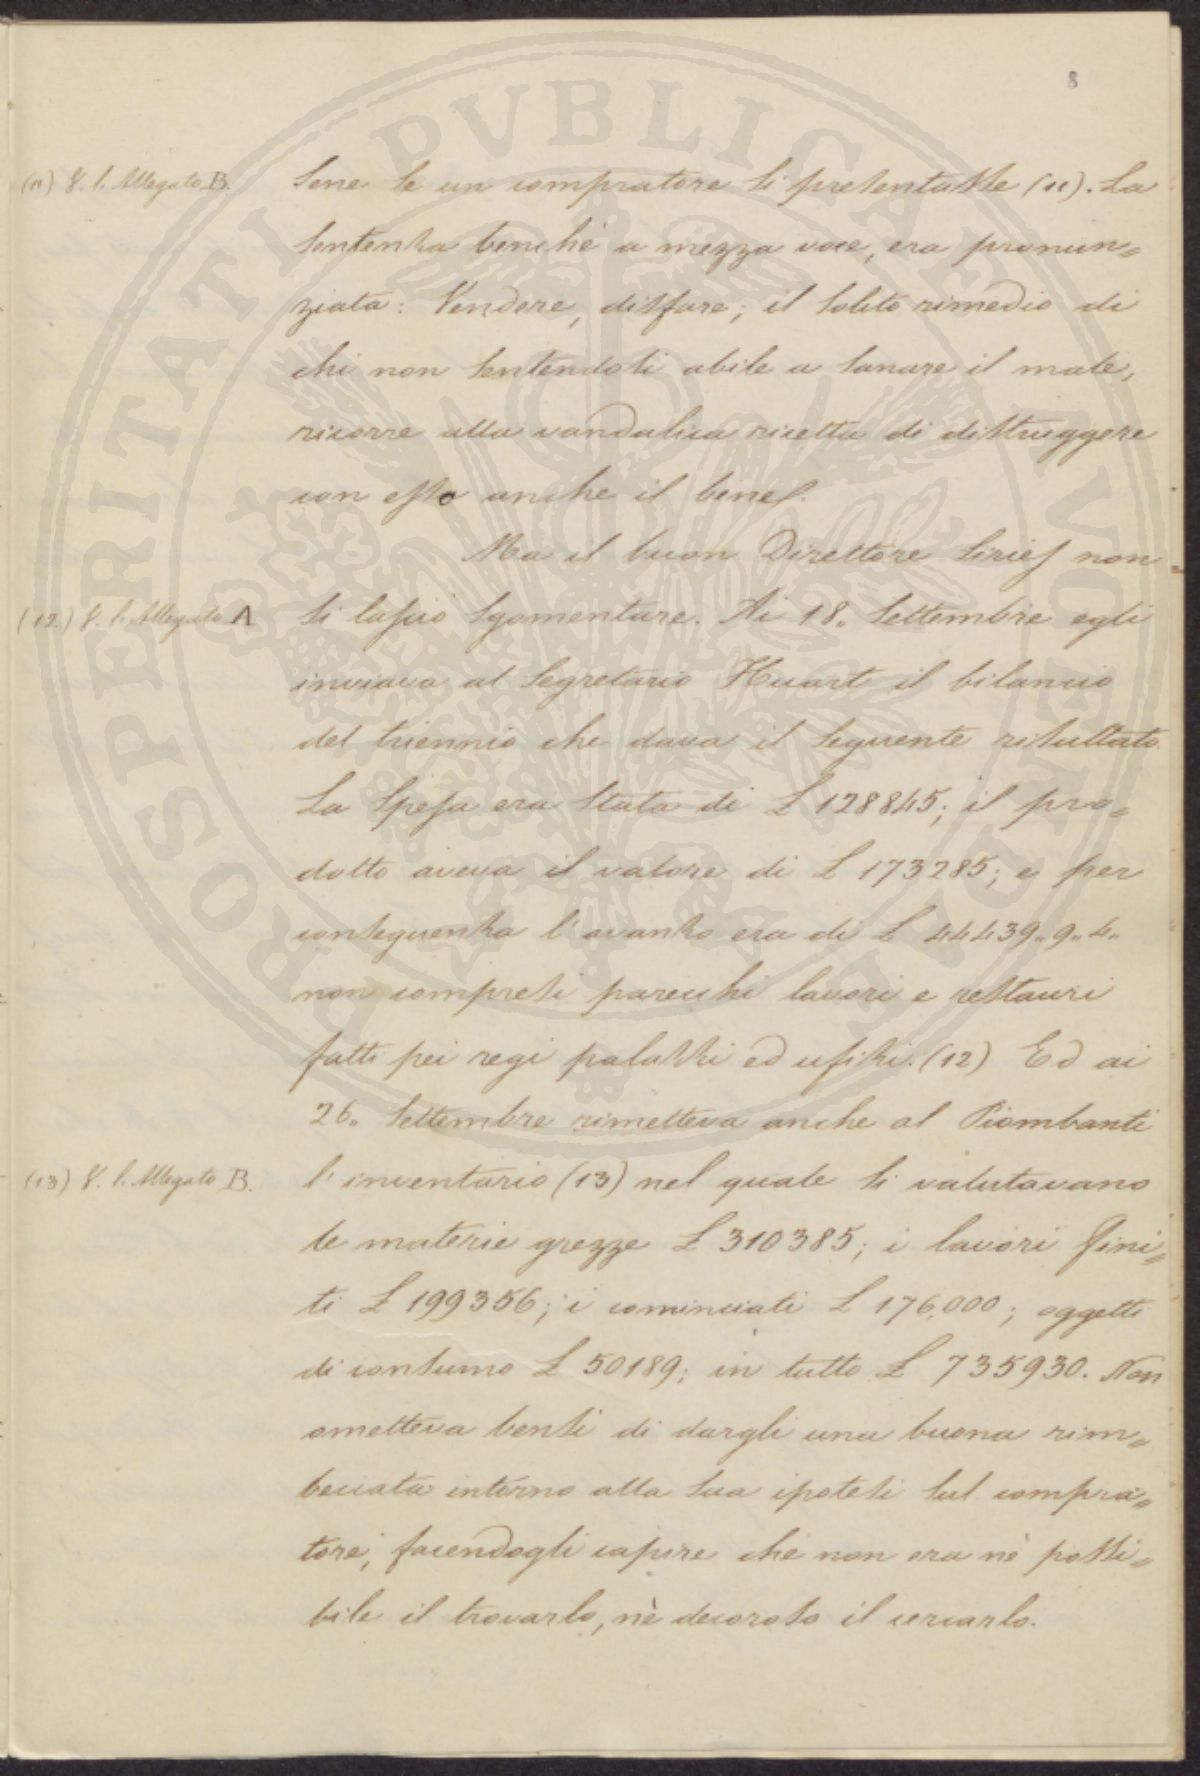 8
(11) V. l'Allegato B.
sene se un compratore si presentasse (11). La
sentenza benchè a mezza voce, era pronun=
ziata: Vendere, disfare; il solito rimedio di
chi non sentendosi abile a sanare il male,
ricorre alla vandalica ricetta di distruggere
con esso anche il bene.
Ma il buon Direttore Siries non
(12) V. l'Allegato A
si lasciò sgomentare. Ai 18. Settembre egli
inviava al Segretario Huart il bilancio
del triennio che dava il seguente risultato
La spesa era stata di £ 128845; il pro=
dotto aveva il valore di £ 173285; e per
conseguenza l'avanzo era di £ 44439.. 9.. 4..
non compresi parecchi lavori e restauri
fatti pei regi palazzi ed ufizi. (12) Ed ai
26. Settembre rimetteva anche al Piombanti
(13) V. l'Allegato B.
l'inventario (13) nel quale si valutavano
le materie grezze £ 310385; i lavori fini=
ti £ 199356; i cominciati £ 176,000; oggetti
di consumo £ 50189; in tutto £ 735930. Non
ometteva bensì di dargli una buona rim=
beccata intorno alla sua ipotesi sul compra=
tore, facendogli capire che non era nè possi=
bile il trovarlo, nè decoroso il cercarlo.
PROSPERITATI PVBLICAE